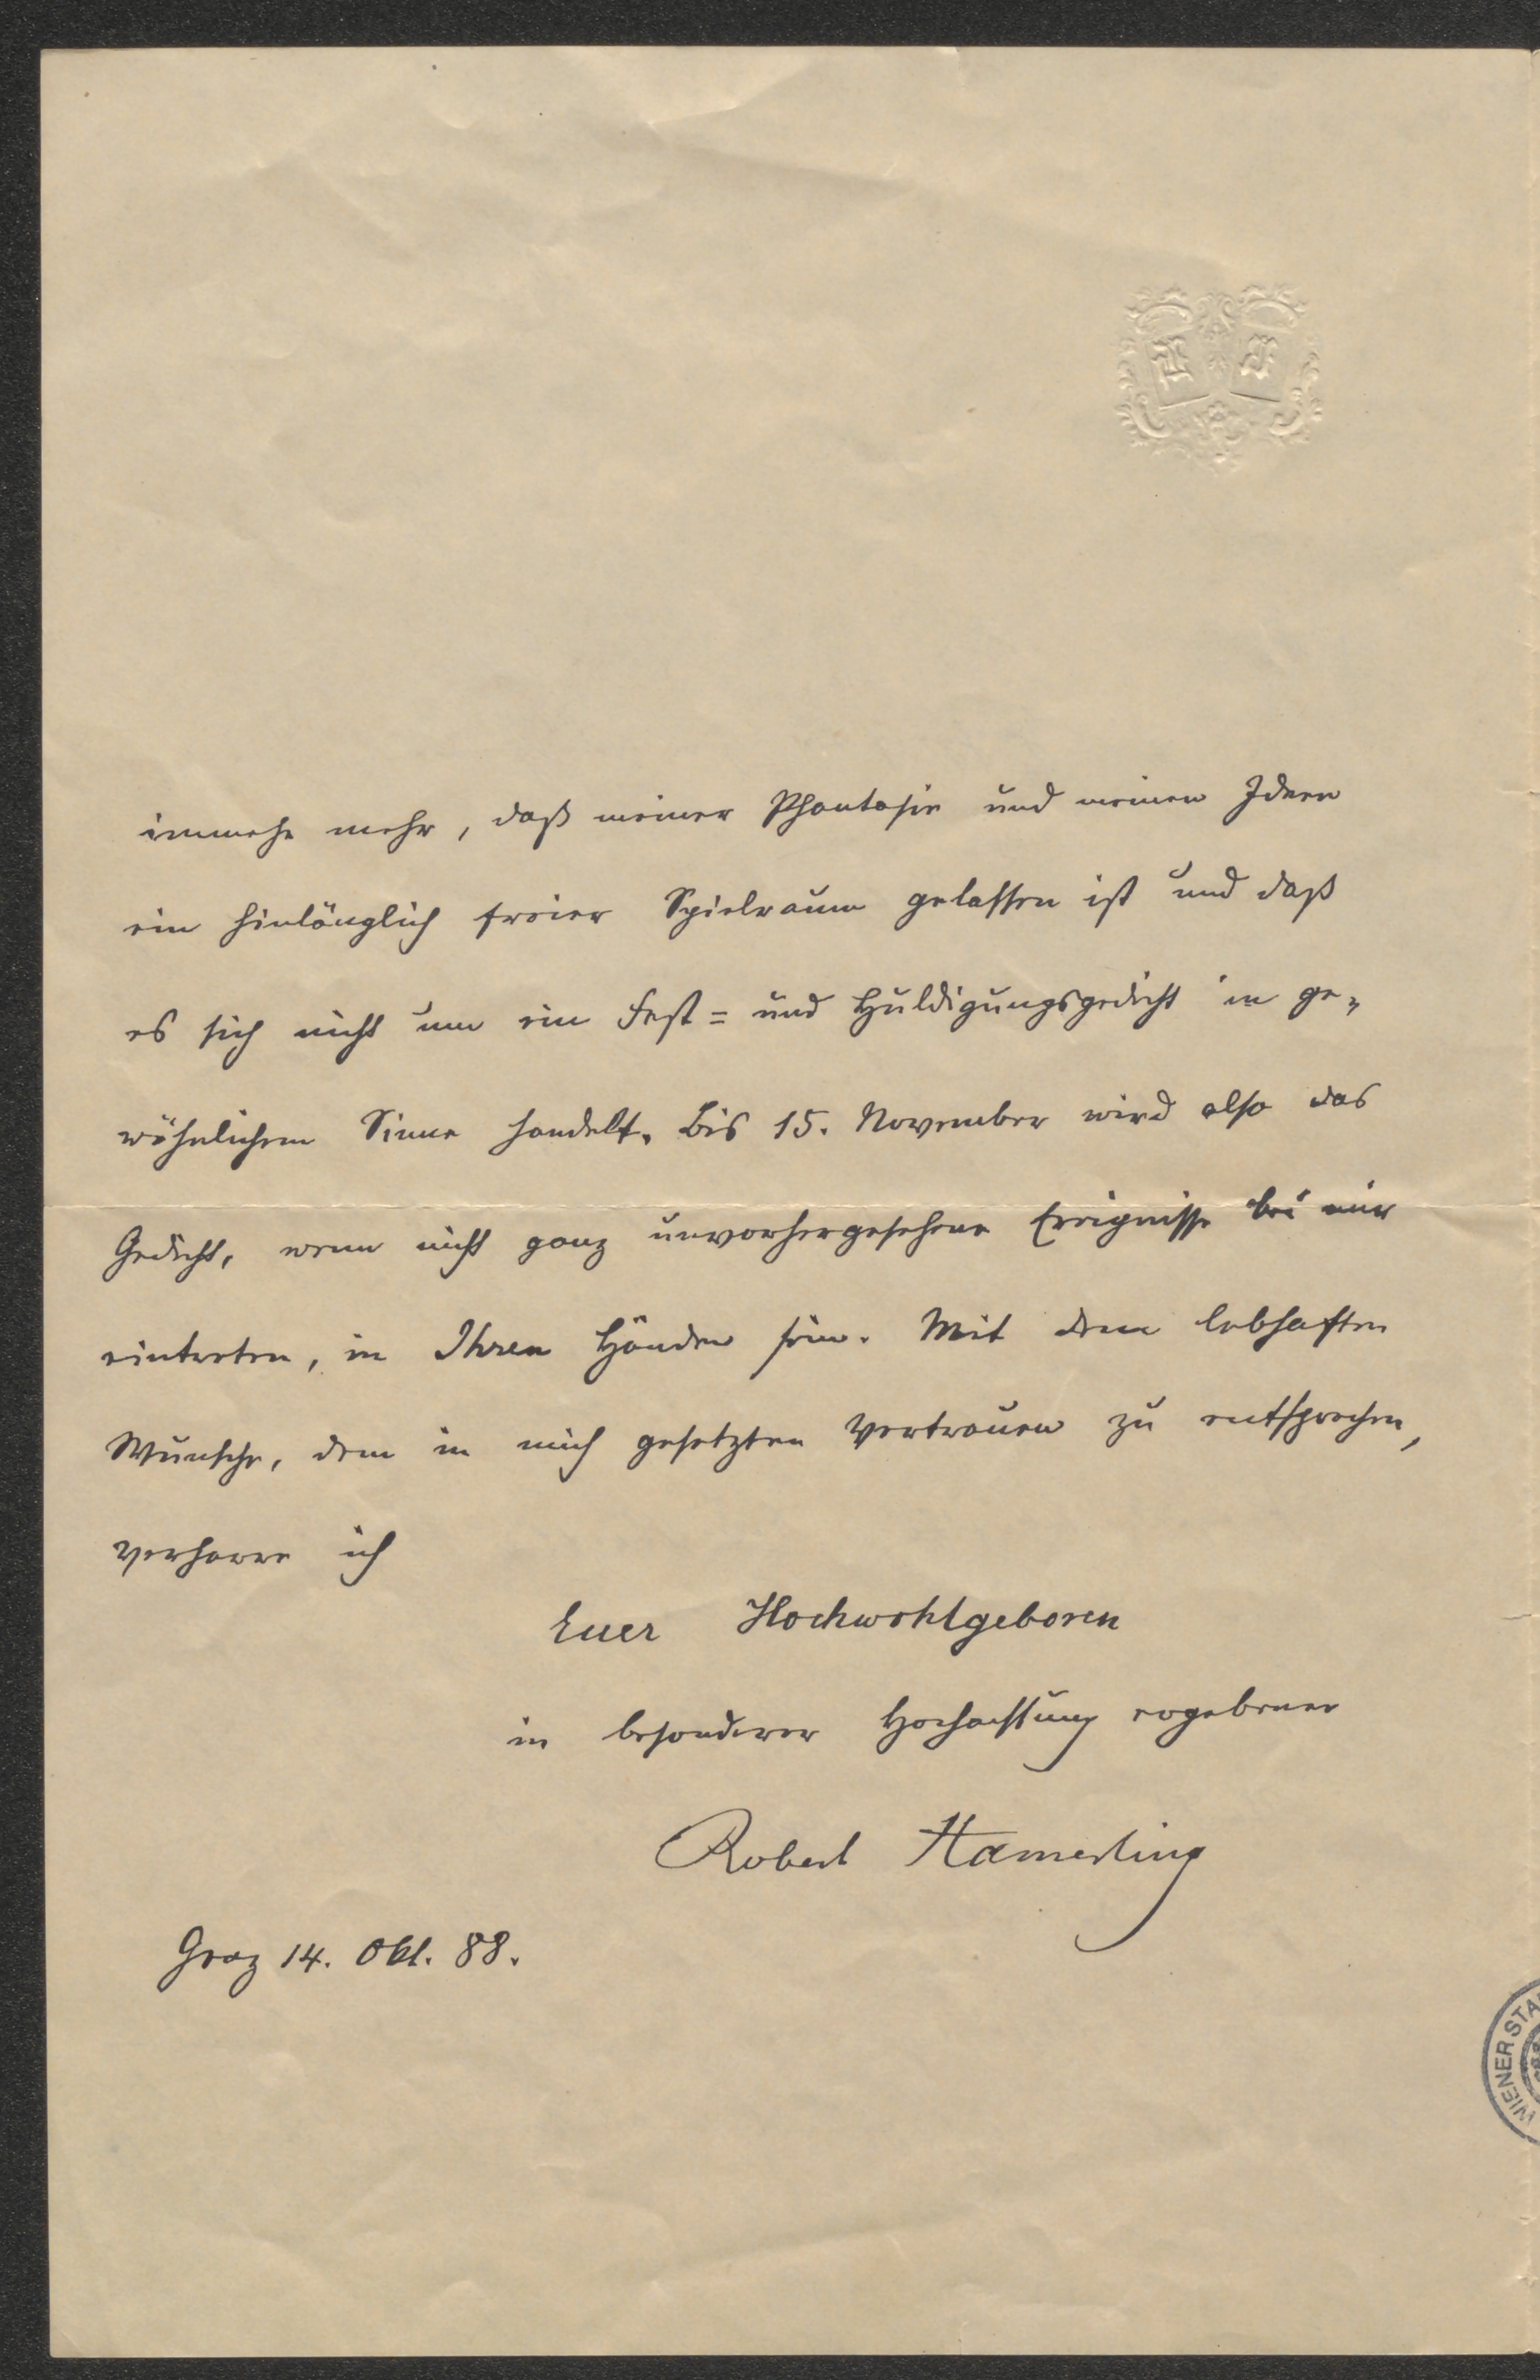 immehr mehr, daß meiner Phantasie und meinen Ideen
ein hinlänglich freier Spielraum gelassen ist und daß
es sich nicht um ein Fest= und Huldigungsgedicht in ge=
wöhnlichem Sinne handelt. Bis 15. November wird also das
Gedicht, wenn nicht ganz unvorhergesehene Ereignisse bei mir
eintreten, in Ihren Händen sein. Mit dem lebhaften
Wunsche, dem in mich gesetzten Vertrauen zu entsprechen,
verharre ich
Euer Hochwohlgeboren
in besonderer Hochachtung ergebener
Robert Hamerling
Graz 14. Okt. 88.
WIENER STA